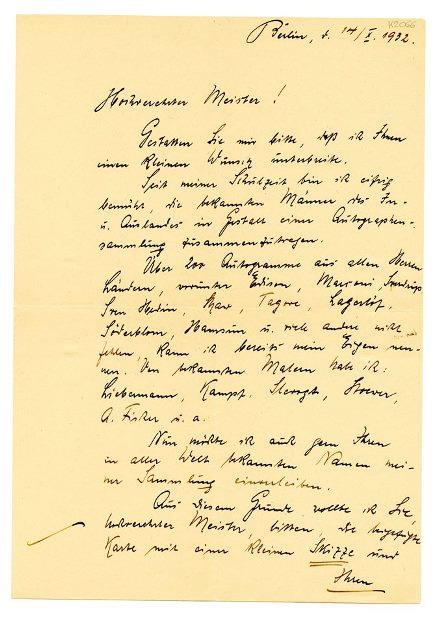 K2066
Berlin, d. 14/X. 1932.
Hochverehrter Meister!
Gestatten Sie mir bitte, daß ich Ihnen
einen kleinen Wunsch unterbreite.
Seit meiner Schulzeit bin ich eifrig
bemüht, die bekannten Männer des In-
u. Auslandes in Gestalt einer Autographen-
sammlung zusammenzutragen.
Über 200 Autogramme aus allen Herren
Ländern, worunter Edison, Marconi,
Sven Hedin, Shaw, Tagore, Lagerlöf,
Söderblom, Hamsun u. viele andere nicht
fehlen, kann ich bereits mein Eigen nen-
nen. Von bekannten Malern habe ich:
Liebermann, Kampf, Slevogt, Stoewer,
A. Fischer u. a.
Nun möchte ich auch gern Ihren
in aller Welt bekannten Namen mei-
ner Sammlung einverleiben.
Aus diesem Grunde wollte ich Sie,
hochverehrter Meister, bitten, die beigefügte
Karte mit einer kleinen Skizze und
Ihren